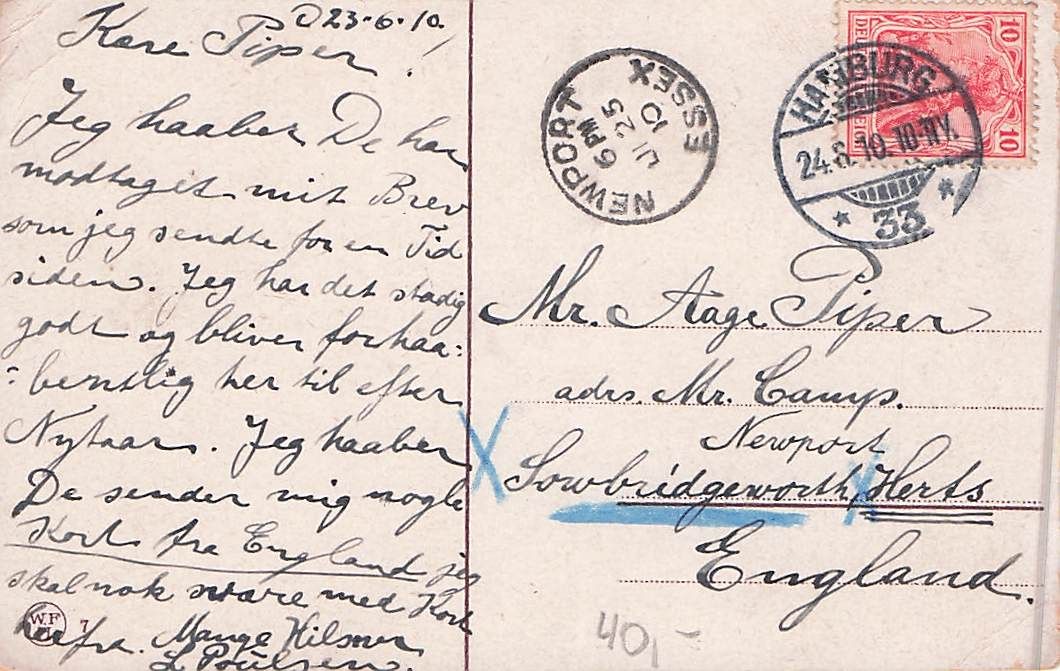 D 23-6-10.
Kære Piper!
Jeg haaber De har
modtaget mit Brev
som jeg sendte for en Tid
siden. Jeg har det stadig
godt og bliver forhaa:
:bentlig her til efter
Nytaar. Jeg haaber
De sender mig nogle
Kort fra England jeg
skal nok svare med Kort
herfra. Mange Hilsner
L Poulsen.
W.F
7
NEWPORT ESSEX
6 PM
JU 25
10
HAMBURG
24.6.10.10-11V.
* 33 *
DEUTSCHES REICH
10 10
Mr. Aage Piper
adrs. Mr. Camp.
Newport
X Sowbridgeworth X Herts
England.
40,-